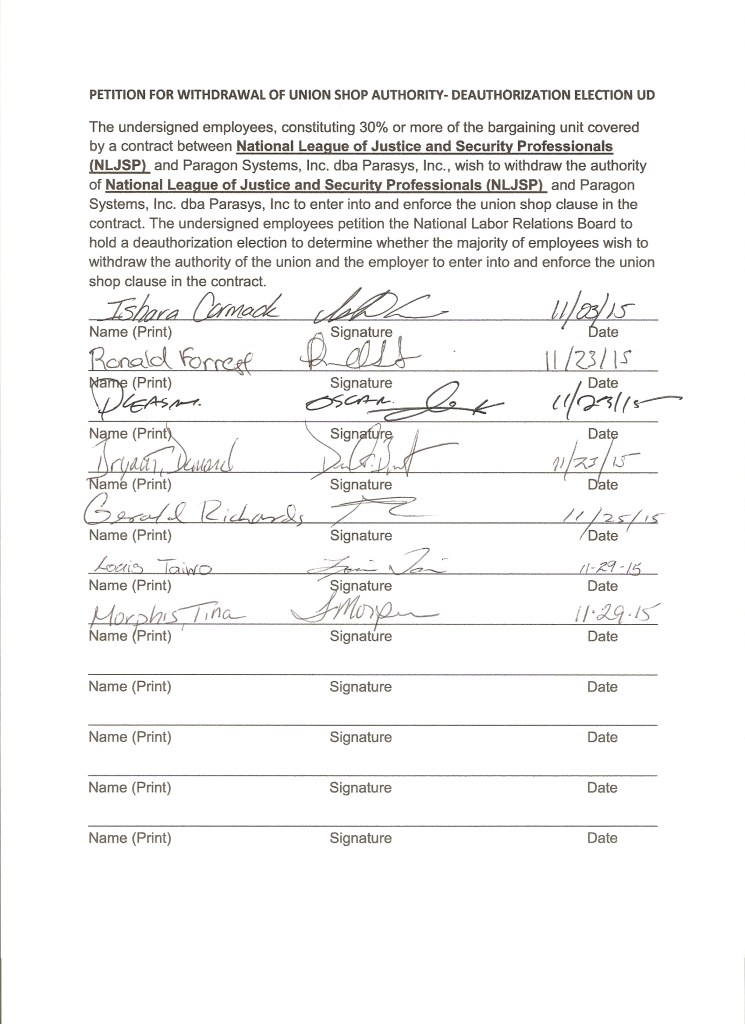 PETITION FOR WITHDRAWAL OF UNION SHOP AUTHORITY- DEAUTHORIZATION ELECTION UD
The undersigned employees, constituting 30% or more of the bargaining unit covered
by a contract between National League of Justice and Security Professionals
(NLJSP) and Paragon Systems, Inc. dba Parasys, Inc., wish to withdraw the authority
of National League of Justice and Security Professionals (NLJSP) and Paragon
Systems, Inc. dba Parasys, Inc to enter into and enforce the union shop clause in the
contract. The undersigned employees petition the National Labor Relations Board to
hold a deauthorization election to determine whether the majority of employees wish to
withdraw the authority of the union and the employer to enter into and enforce the union
shop clause in the contract.
Ishara Cormack 11/23/15
Name (Print) Signature Date
Ronald Forrest 11/23/15
Name (Print) Signature Date
OSCAR 11/23/15
Name (Print) Signature Date
Bryant, 11/23/15
Name (Print) Signature Date
Gerald Richards 11/25/15
Name (Print) Signature Date
Louis Taiwo 11-29-15
Name (Print) Signature Date
Morphis, Tina 11-29-15
Name (Print) Signature Date
Name (Print) Signature Date
Name (Print) Signature Date
Name (Print) Signature Date
Name (Print) Signature Date